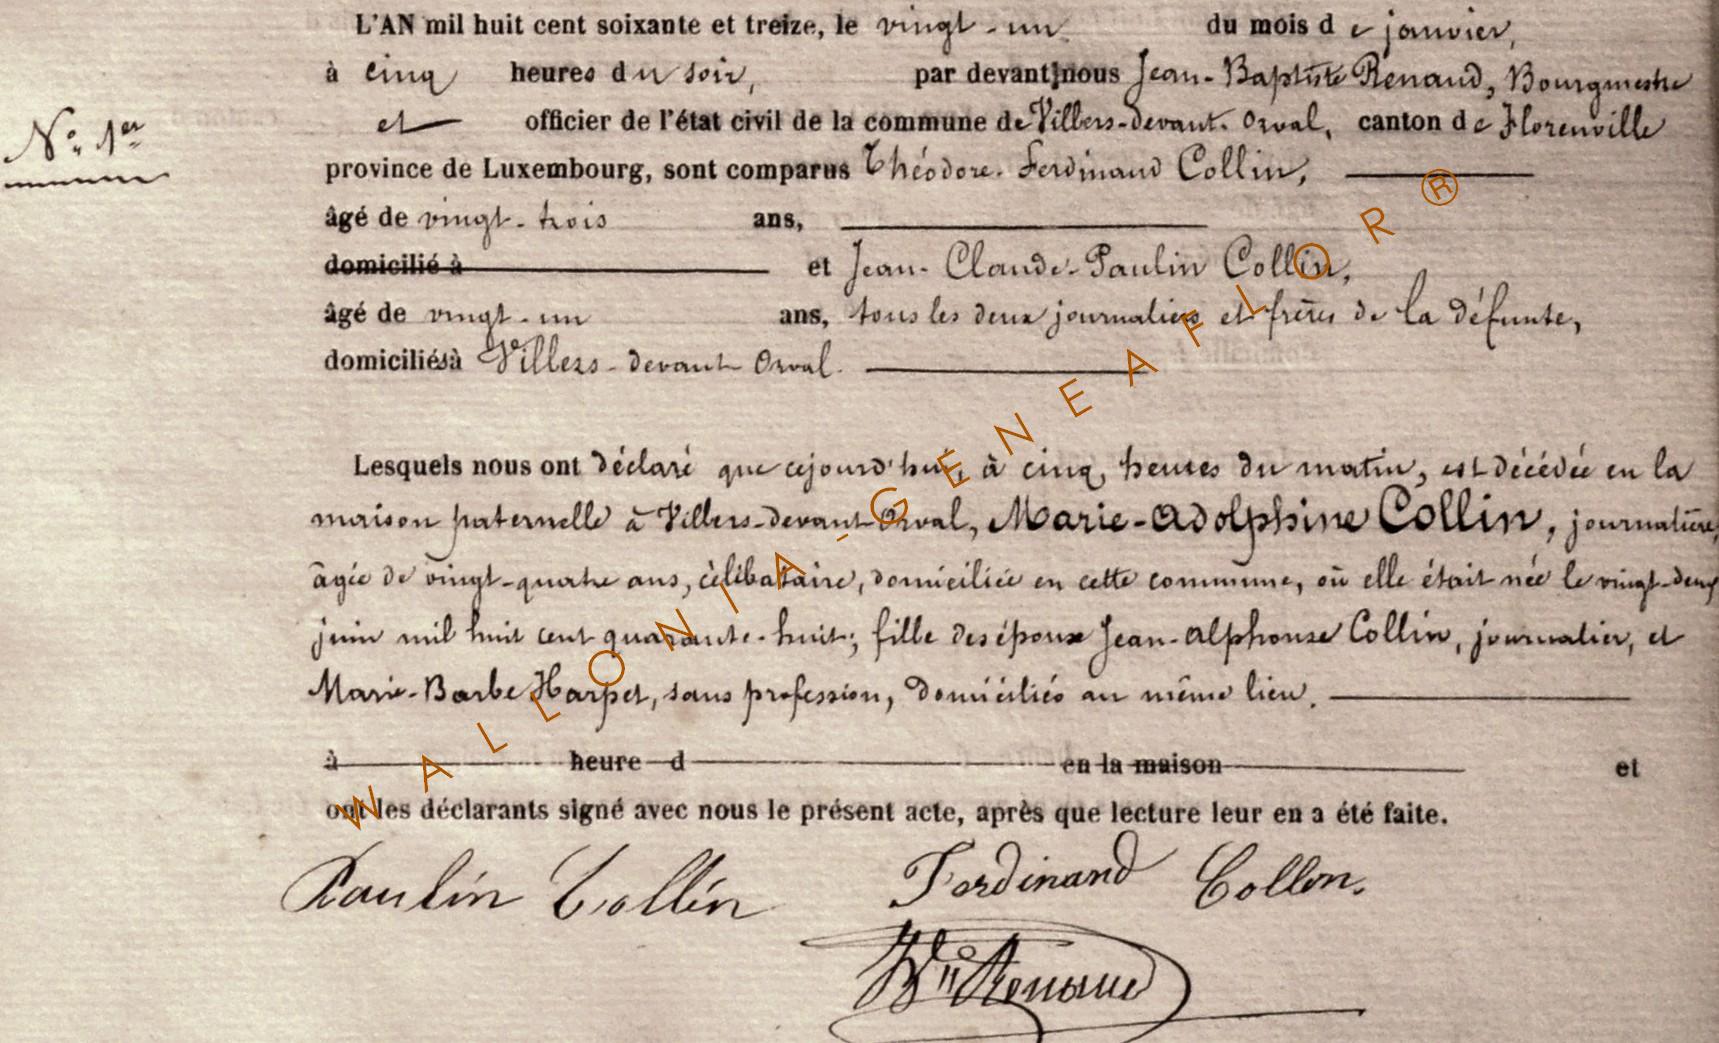 L'AN mil huit cent soixante et treize, le vingt-un du mois de janvier,
à cinq heures du soir, par devant nous Jean-Baptiste Renaud, Bourgmestre
N° 1er
et officier de l'état civil de la commune de Villers-devant-Orval, canton de Florenville
province de Luxembourg, sont comparus Théodore-Ferdinand Collin,
âgé de vingt-trois ans,
domicilié à et Jean-Claude-Paulin Collin,
âgé de vingt-un ans, tous les deux journaliers et frères de la défunte,
domiciliés à Villers-devant-Orval.
Lesquels nous ont déclaré que cejourd'hui, à cinq heures du matin, est décédée en la
maison paternelle à Villers-devant-Orval, Marie-Adolphine Collin, journalière,
âgée de vingt-quatre ans, célibataire, domiciliée en cette commune, où elle était née le vingt-deux
juin mil huit cent quarante-huit; fille des époux Jean-Alphonse Collin, journalier, et
Marie-Barbe Harpet, sans profession, domiciliés au même lieu.
à heure d en la maison et
ont les déclarants signé avec nous le présent acte, après que lecture leur en a été faite.
Paulin Collin Ferdinand Collin.
Renaud
WALLONIA-GENEAFLOR ®